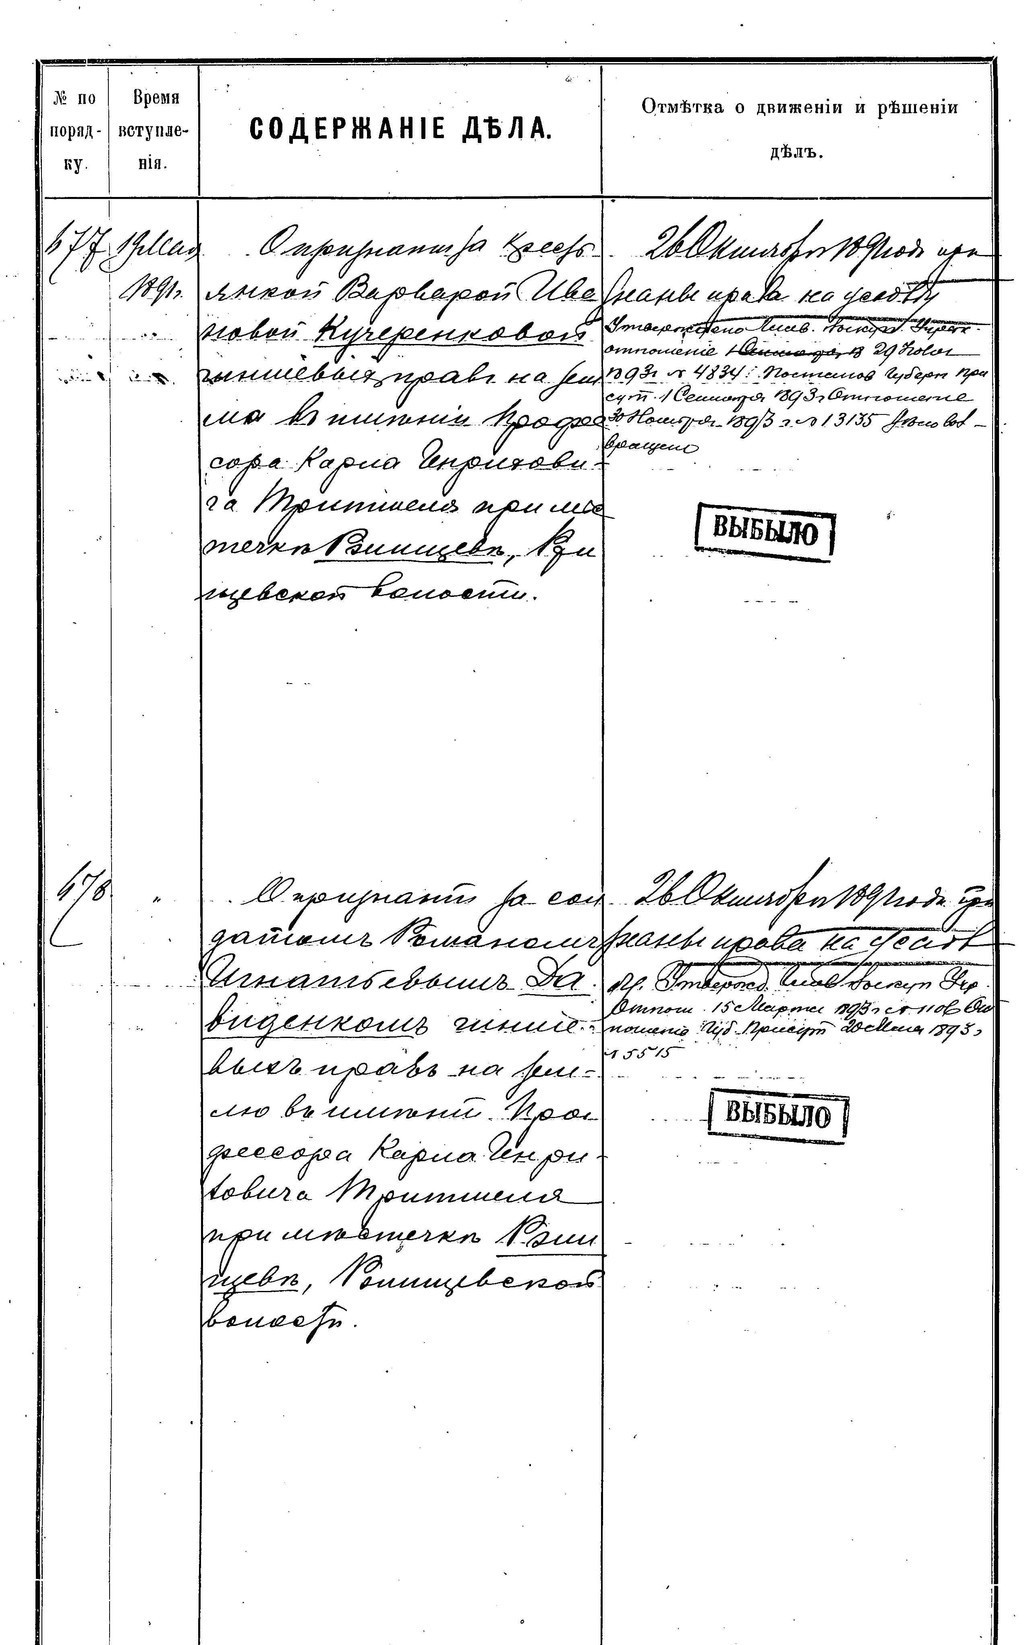 № по поряд- ку.
Время вступле- нія.
СОДЕРЖАНІЕ ДѢЛА.
Отмѣтка о движеніи и рѣшеніи дѣлъ.
677
19 Мая
1891 г.
О признаніи за кресть-
янкой Варварой Ива
новой Кучеренковой
чиншевыхъ правъ на зем
лю въ имѣніи Профес
сора Карла Генрихови-
ча Тритшеля при мѣс
течкѣ Ржищевѣ, Ржи
щевской волости.
26 Октября 1891 года при
знаны права на усадьбу
Утверждено
отношеніе 29 Ноября
1893 г. № 4834. Постанов Губерн При
сут. 1 Сентября 1893 г. Отношеніе
30 Ноября 1893 г. № 13135 Дѣло воз-
вращено
ВЫБЫЛО
678
"
О признаніи за сол
датомъ Романомъ
Игнатьевымъ Да-
виденкомъ чинше-
выхъ правъ на зем-
лю въ имѣніи Про-
фессора Карла Генри-
ховича Тритшеля
при мѣстечкѣ Ржи
щевѣ, Ржищевской
волости.
26 Октября 1891 года при
знаны права на усадь
бу. Утвержд.
Отнош. 15 Марта 1893 г. № 1106 От
ношеніе Губ. Присут 20 Мая 1893 г.
№ 5515
ВЫБЫЛО